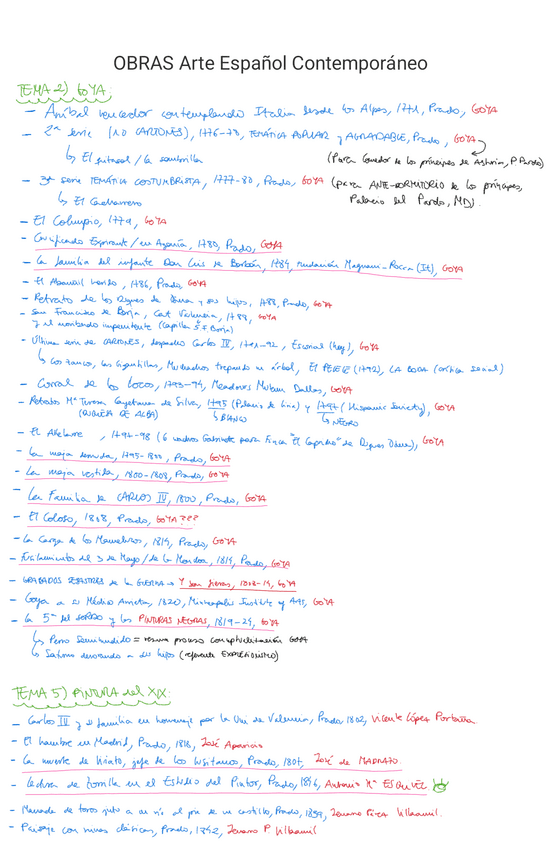 OBRAS Arte Español Contemporáneo
TEMA 2) GOYA:
- Aníbal vencedor contemplando Italia desde los Alpes, 1771, Prado, GOYA
- 2ª serie (10 CARTONES), 1776-78, TEMÁTICA POPULAR y AGRADABLE, Prado, GOYA
↳ El quitasol / la sombrilla (Para Comedor de los príncipes de Asturias, P. Pardo)
- 3ª serie TEMÁTICA COSTUMBRISTA, 1777-80, Prado, GOYA (para ANTE-DORMITORIO de los príncipes,
↳ El Cacharrero Palacio del Pardo, MD).
- El Columpio, 1779, GOYA
- Crucificado Expirante / en Agonía, 1780, Prado, GOYA
- La familia del infante Don Luis de Borbón, 1784, Fundación Magnani-Rocca (It), GOYA
- El Albañil herido, 1786, Prado, GOYA
- Retrato de los Duques de Osuna y sus hijos, 1788, Prado, GOYA
- San Francisco de Borja, Cat Valencia, 1788, GOYA
y el moribundo impenitente (Capilla S. F. Borja)
- Última serie de CARTONES, despacho Carlos IV, 1791-92, Escorial (hoy), GOYA
↳ Los zancos, Las Gigantillas, Muchachos trepando un árbol, El PELELE (1792), LA BODA (crítica social)
- Corral de los Locos, 1793-94, Meadows Museum Dallas, GOYA
- Retratos Mª Teresa Cayetana de Silva, 1795 (Palacio de Liria) y 1797 (Hispanic Society), GOYA
(DUQUESA DE ALBA) ↳ BLANCO ↳ NEGRO
- El Akelarre, 1797-98 (6 cuadros Gabinete para Finca "El Capricho" de Duques Osuna), GOYA
- La maja desnuda, 1795-1800, Prado, GOYA
- La maja vestida, 1800-1808, Prado, GOYA
- La Familia de CARLOS IV, 1800, Prado, GOYA
- El Coloso, 1808, Prado, GOYA???
- La Carga de los Mamelucos, 1814, Prado, GOYA
- Fusilamientos del 3 de Mayo / de la Moncloa, 1814, Prado, GOYA
- GRABADOS DESASTRES de la GUERRA → Y son fieras, 1808-14, GOYA
- Goya a su Médico Arrieta, 1820, Minneapolis Institute of Arts, GOYA
- La 5ª del SORDO y las PINTURAS NEGRAS, 1819-24, GOYA
↳ Perro Semihundido = resume proceso conceptualización GOYA
↳ Saturno devorando a sus hijos (referente EXPRESIONISMO)
TEMA 5) PINTURA del XIX:
- Carlos IV y su familia en homenaje por la Uni de Valencia, Prado, 1802, Vicente López Portaña
- El hambre en Madrid, Prado, 1818, José Aparicio
- La muerte de Viriato, jefe de los lusitanos, Prado, 1807, José de MADRAZO.
- Lectura de Zorrilla en el Estudio del Pintor, Prado, 1846, Antonio Mª ESQUIVEL
- Manada de toros junto a un río al pie de un castillo, Prado, 1837, Jenaro Pérez Villaamil.
- Paisaje con ruinas clásicas, Prado, 1842, Jenaro P. Villaamil